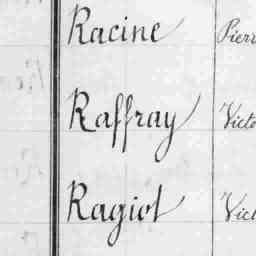 Racine Pierr
Raffray Victo
Ragiot Vict